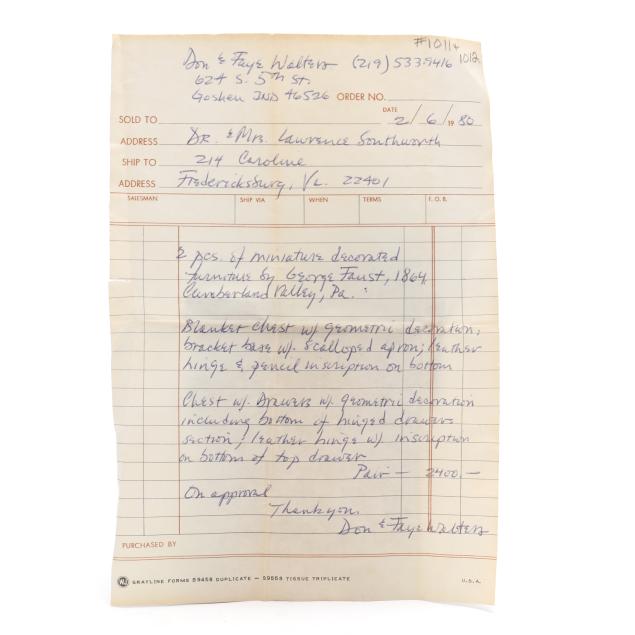 #1011+
1012
Don & Faye Walters (219) 533-9416
624 S. 5th St.
Goshen IND 46526 ORDER NO.
DATE
SOLD TO 2/6/1980
ADDRESS Dr. & Mrs. Lawrence Southworth
SHIP TO 214 Caroline
ADDRESS Fredericksburg, Va. 22401
SALESMAN SHIP VIA WHEN TERMS F.O.B.
2 pcs. of miniature decorated
furniture by George Faust, 1864,
Cumberland Valley, Pa.:
Blanket chest w/ geometric decoration;
bracket base w/. scalloped apron; leather
hinge & pencil inscription on bottom
Chest w/. Drawers w/. geometric decoration
including bottom of hinged drawers
section; leather hinge w/ inscription
on bottom of top drawer
Pair — 2400.—
On approval
Thank you,
Don & Faye Walters
PURCHASED BY
GRAYLINE FORMS 59458 DUPLICATE — 59558 TISSUE TRIPLICATE U.S.A.